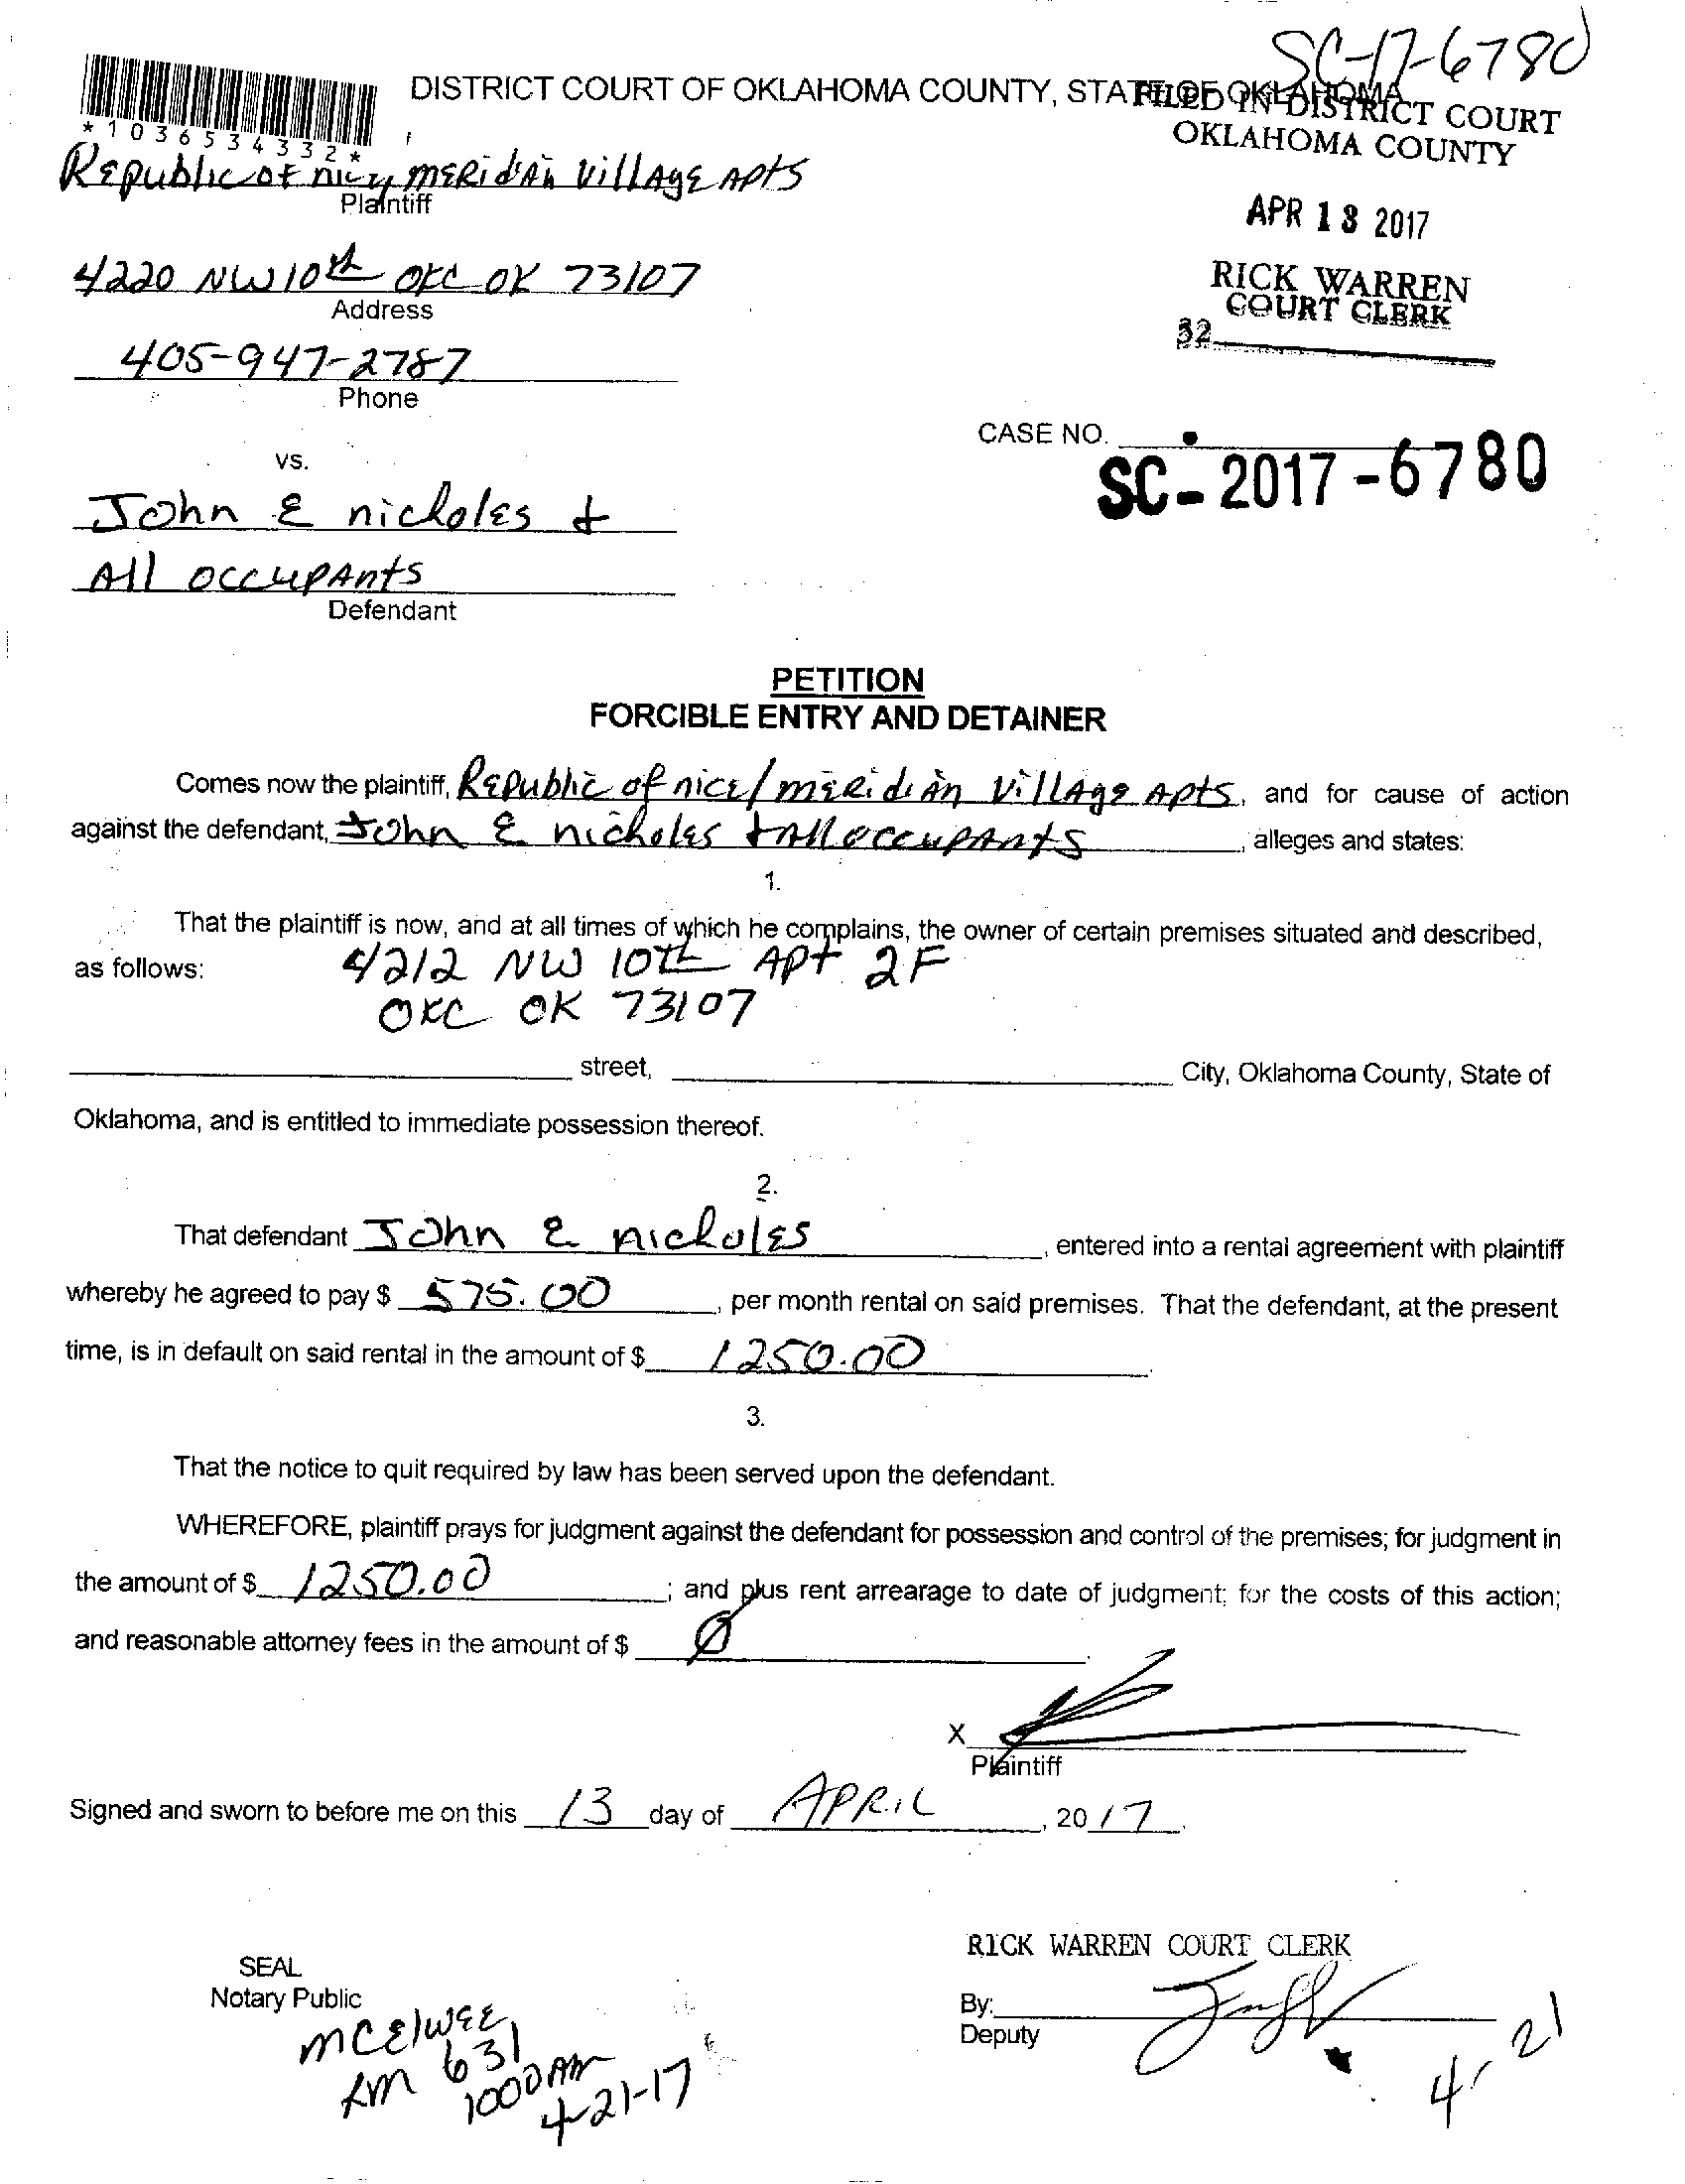 SC-17-6780
DISTRICT COURT OF OKLAHOMA COUNTY, STATE OF OKLAHOMA
FILED IN DISTRICT COURT
OKLAHOMA COUNTY
*1036534332*
Republic of nice/ MERidiAn VillAgE APtS
Plaintiff
APR 13 2017
4220 NW 10th OKC OK 73107
Address
RICK WARREN
COURT CLERK
32
405-947-2787
Phone
CASE NO.
SC-2017-6780
vs.
John E nicholes +
All occupAnts
Defendant
PETITION
FORCIBLE ENTRY AND DETAINER
Comes now the plaintiff, Republic of nice/ meRidiAn VillAge Apts, and for cause of action
against the defendant, John E nicholes + All occupAnts, alleges and states:
1.
That the plaintiff is now, and at all times of which he complains, the owner of certain premises situated and described,
as follows: 4212 NW 10th Apt 2F
OKC OK 73107
street, City, Oklahoma County, State of
Oklahoma, and is entitled to immediate possession thereof.
2.
That defendant John E nicholes, entered into a rental agreement with plaintiff
whereby he agreed to pay $ 575.00, per month rental on said premises. That the defendant, at the present
time, is in default on said rental in the amount of $ 1250.00.
3.
That the notice to quit required by law has been served upon the defendant.
WHEREFORE, plaintiff prays for judgment against the defendant for possession and control of the premises; for judgment in
the amount of $ 1250.00; and plus rent arrearage to date of judgment; for the costs of this action;
and reasonable attorney fees in the amount of $ Ø.
X
Plaintiff
Signed and sworn to before me on this 13 day of APRiL, 2017.
RICK WARREN COURT CLERK
SEAL
Notary Public
By:
Deputy
MCElWEE
RM 631
1000 AM
4-21-17
4-21